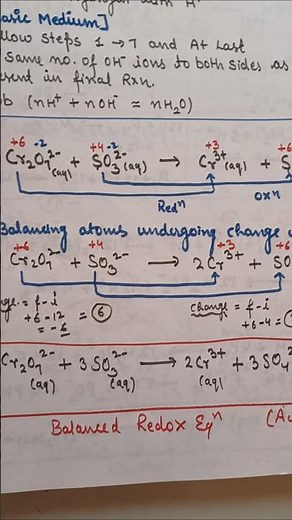 asic Medium]
llow steps 1 → 7 and At last
same no. of OH⁻ ions to both sides as
esent in final Rxn.
b (nH⁺ + nOH⁻ = nH₂O)
+6 -2 +4 -2 +3 +6
Cr₂O₇²⁻(aq) + SO₃²⁻(aq) → Cr³⁺(aq) + S
Redⁿ Oxⁿ
Balancing atoms undergoing change
+6 +4 +3 +6
Cr₂O₇²⁻ + SO₃²⁻ → 2Cr³⁺ + SO
nge = f-i change = f-i
+6-12 = 6 +6-4 =
= -6
Cr₂O₇²⁻(aq) + 3SO₃²⁻(aq) → 2Cr³⁺(aq) + 3SO₄²
Balanced Redox Eqⁿ (Ac